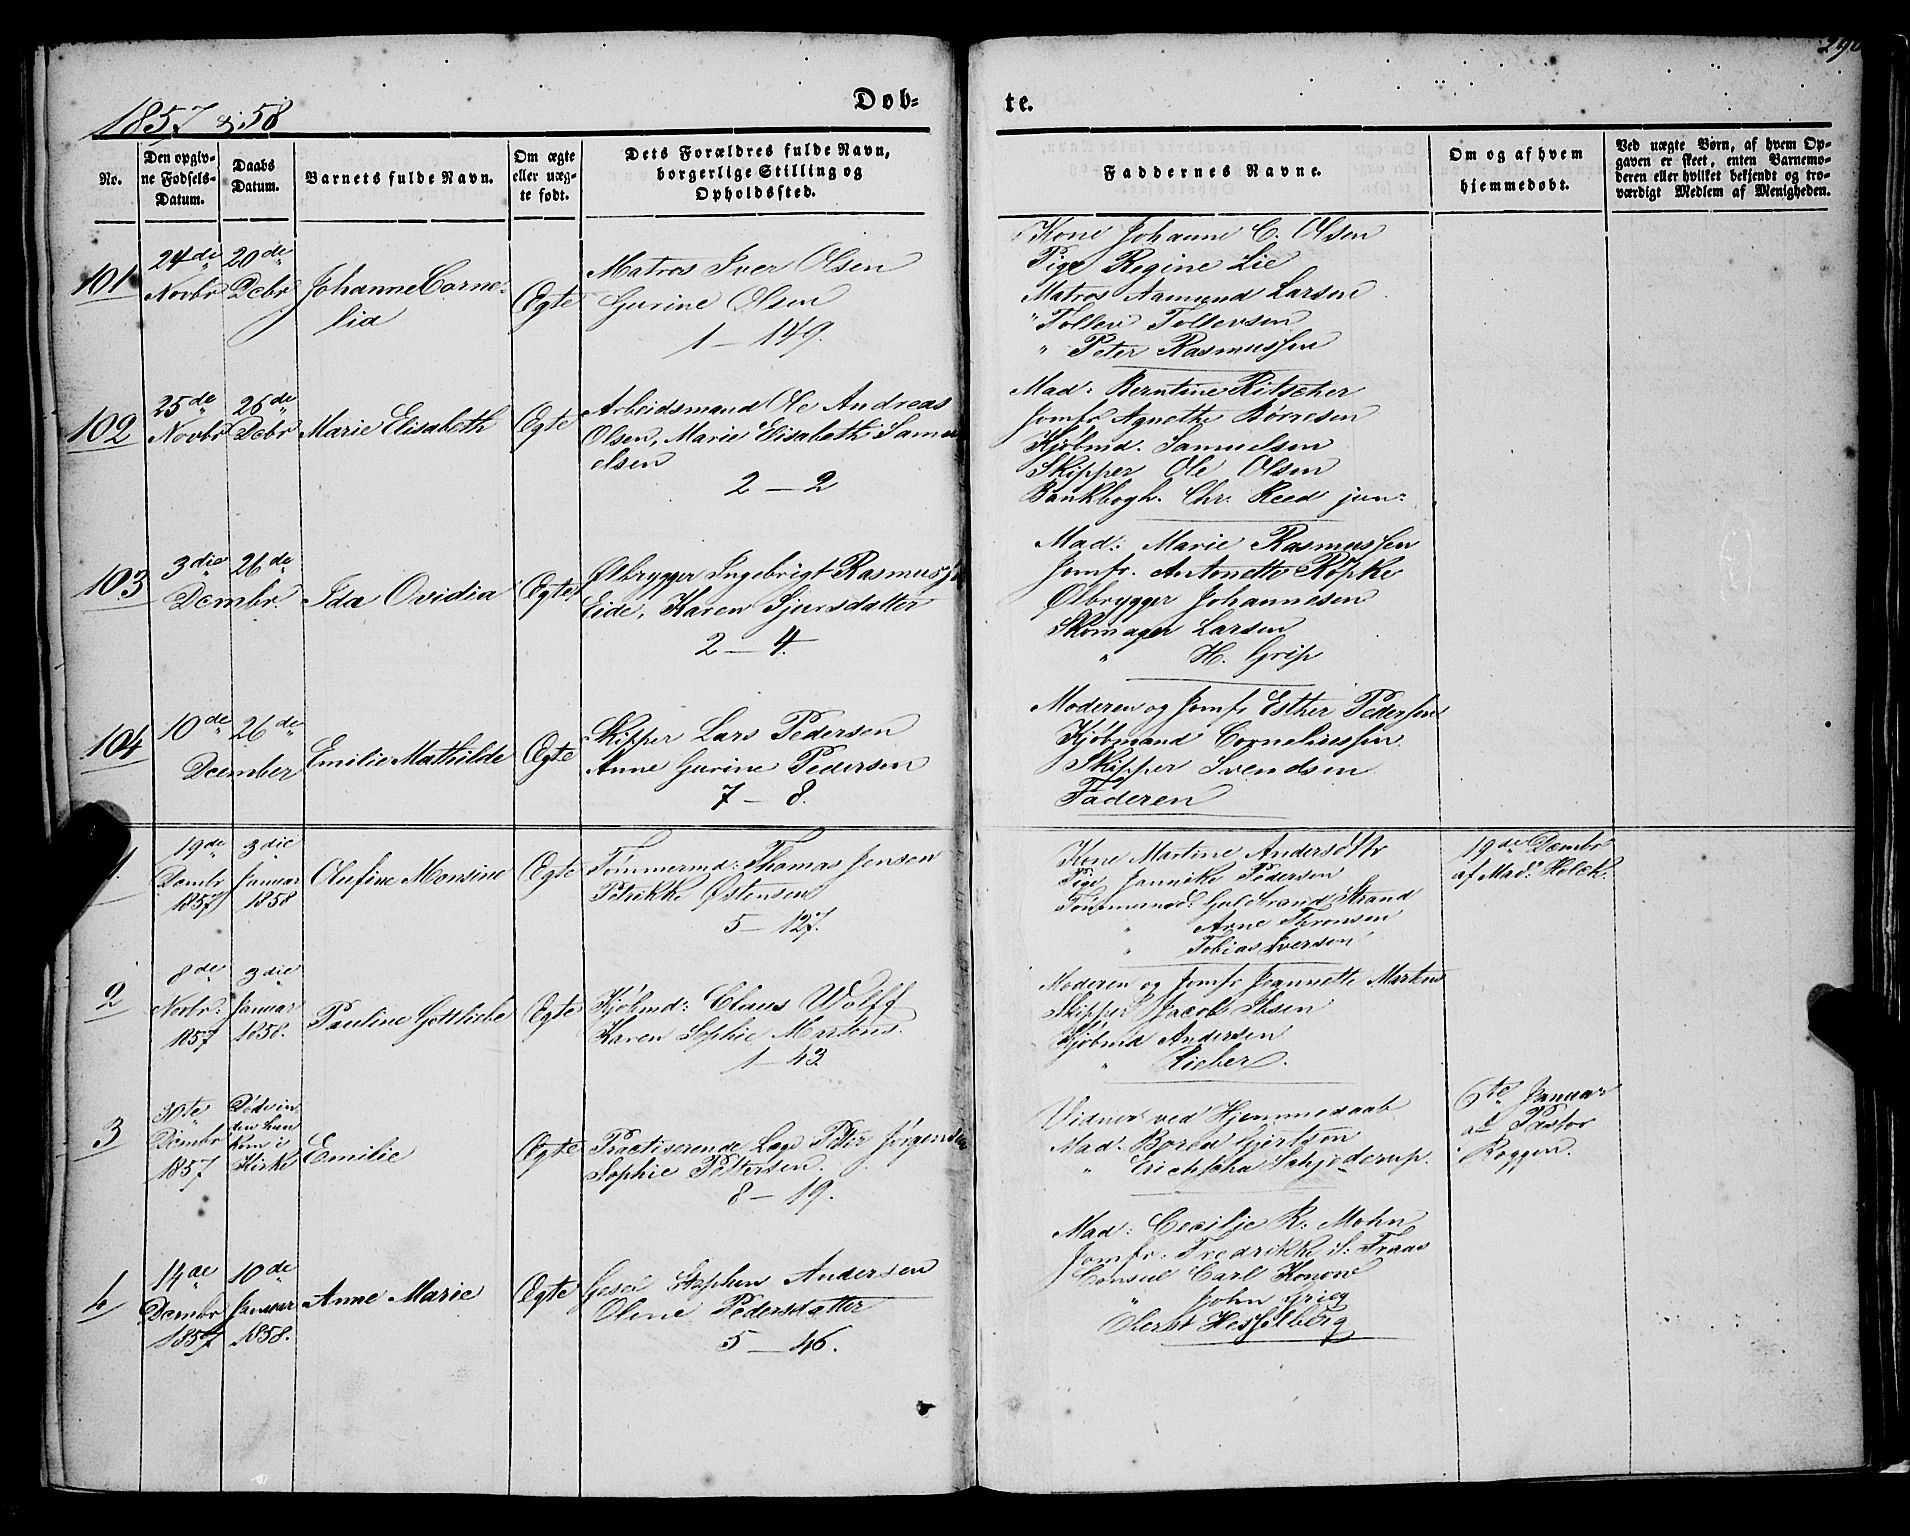 290
1857 & 58
Døb-
te.
No.
Den opgiv-
ne Fødsels-
Datum.
Daabs
Datum.
Barnets fulde Navn.
Om ægte
eller uæg-
te født.
Dets Forældres fulde Navn,
borgerlige Stilling og
Opholdssted.
Faddernes Navne.
Om og af hvem
hjemmedøbt.
Ved uægte Børn, af hvem Op-
gaven er skeet, enten Barnemo-
deren eller hvilket bekjendt og tro-
værdigt Medlem af Menigheden.
101
24de
Novbr
20de
Debr
Johanne Corne-
lia
Ægte
Matros Iver Olsen
Gurine Olsen
1 — 149.
Kone Johanne C. Olsen
Pige Regine Lie
Matros Aamund Larsen
" Tollev Tollevsen
" Peter Rasmussen
102
25de
Novbr
26de
Debr
Marie Elisabeth
Ægte
Arbeidsmand Ole Andreas
Olsen, Marie Elisabeth Samu
elsen
2 — 2
Mad: Berntine Ritscher
Jomfr Agnethe Børresen
Kjøbmd. Samuelsen
Skipper Ole Olsen
Bankbogh. Chr. Reed jun:
103
3die
26de
Dcembr.
Ida Ovidia
Ægte
Ølbrygger Ingebrigt Rasmus
Eide, Karen Sjursdatter
2 — 4.
Mad: Marie Rasmussen
Jomfr. Antonette Röpke
Ølbrygger Johannesen
Skomager Larsen
" H. Grip
104
10de
26de
Dcember
Emilie Mathilde
Ægte
Skipper Lars Pedersen
Anne Gurine Pedersen
7 — 8.
Moderen og Jomfr Esther Pedersen
Kjøbmand Corneliussen
Skipper Svendsen
Faderen
1.
19de
Dcmbr
1857
3die
Januar
1858
Olufine Monsine
Ægte
Tømmermd: Thomas Jensen
Petrikke Østensen
5 — 127.
Kone Martine Andersdtr
Pige Jannike Pedersen
Tømmermd: Strand
" Arne Thronsen
" Tobias Iversen
19de Dcmbr
af Mad: Holck.
2
8de
Novbr:
1857
3die
Januar
1858.
Pauline Gottliebe
Ægte
Kjøbmd: Claus Wolff
Karen Sophie Martens.
1 — 43
Moderen og Jomfr Jeannette Martens
Skipper Jacob Ibsen
Kjøbmd Andersen
" Rieber.
3
30te
Dcmbr
1857
Døde in-
den han
kom i
Kirke
Emilie
Ægte
Practiserende Læge Peter Jørgensen
Sophie Pettersen.
8 — 19.
Vidner ved Hjemmedaab
Mad: Gjertsen
" Schjederup.
6te Januar
af Pastor
Roggen.
4
14de
Dcembr
1857
10de
Januar
1858.
Anne Marie
Ægte
Stephen Andersen
Oline Pedersdatter
5 — 46.
Mad: Cecilie R: Mohn
Jomfr: Fredrikke S: Fraas
Consul Carl Konow
" John Grieg
Oberst Hesselberg